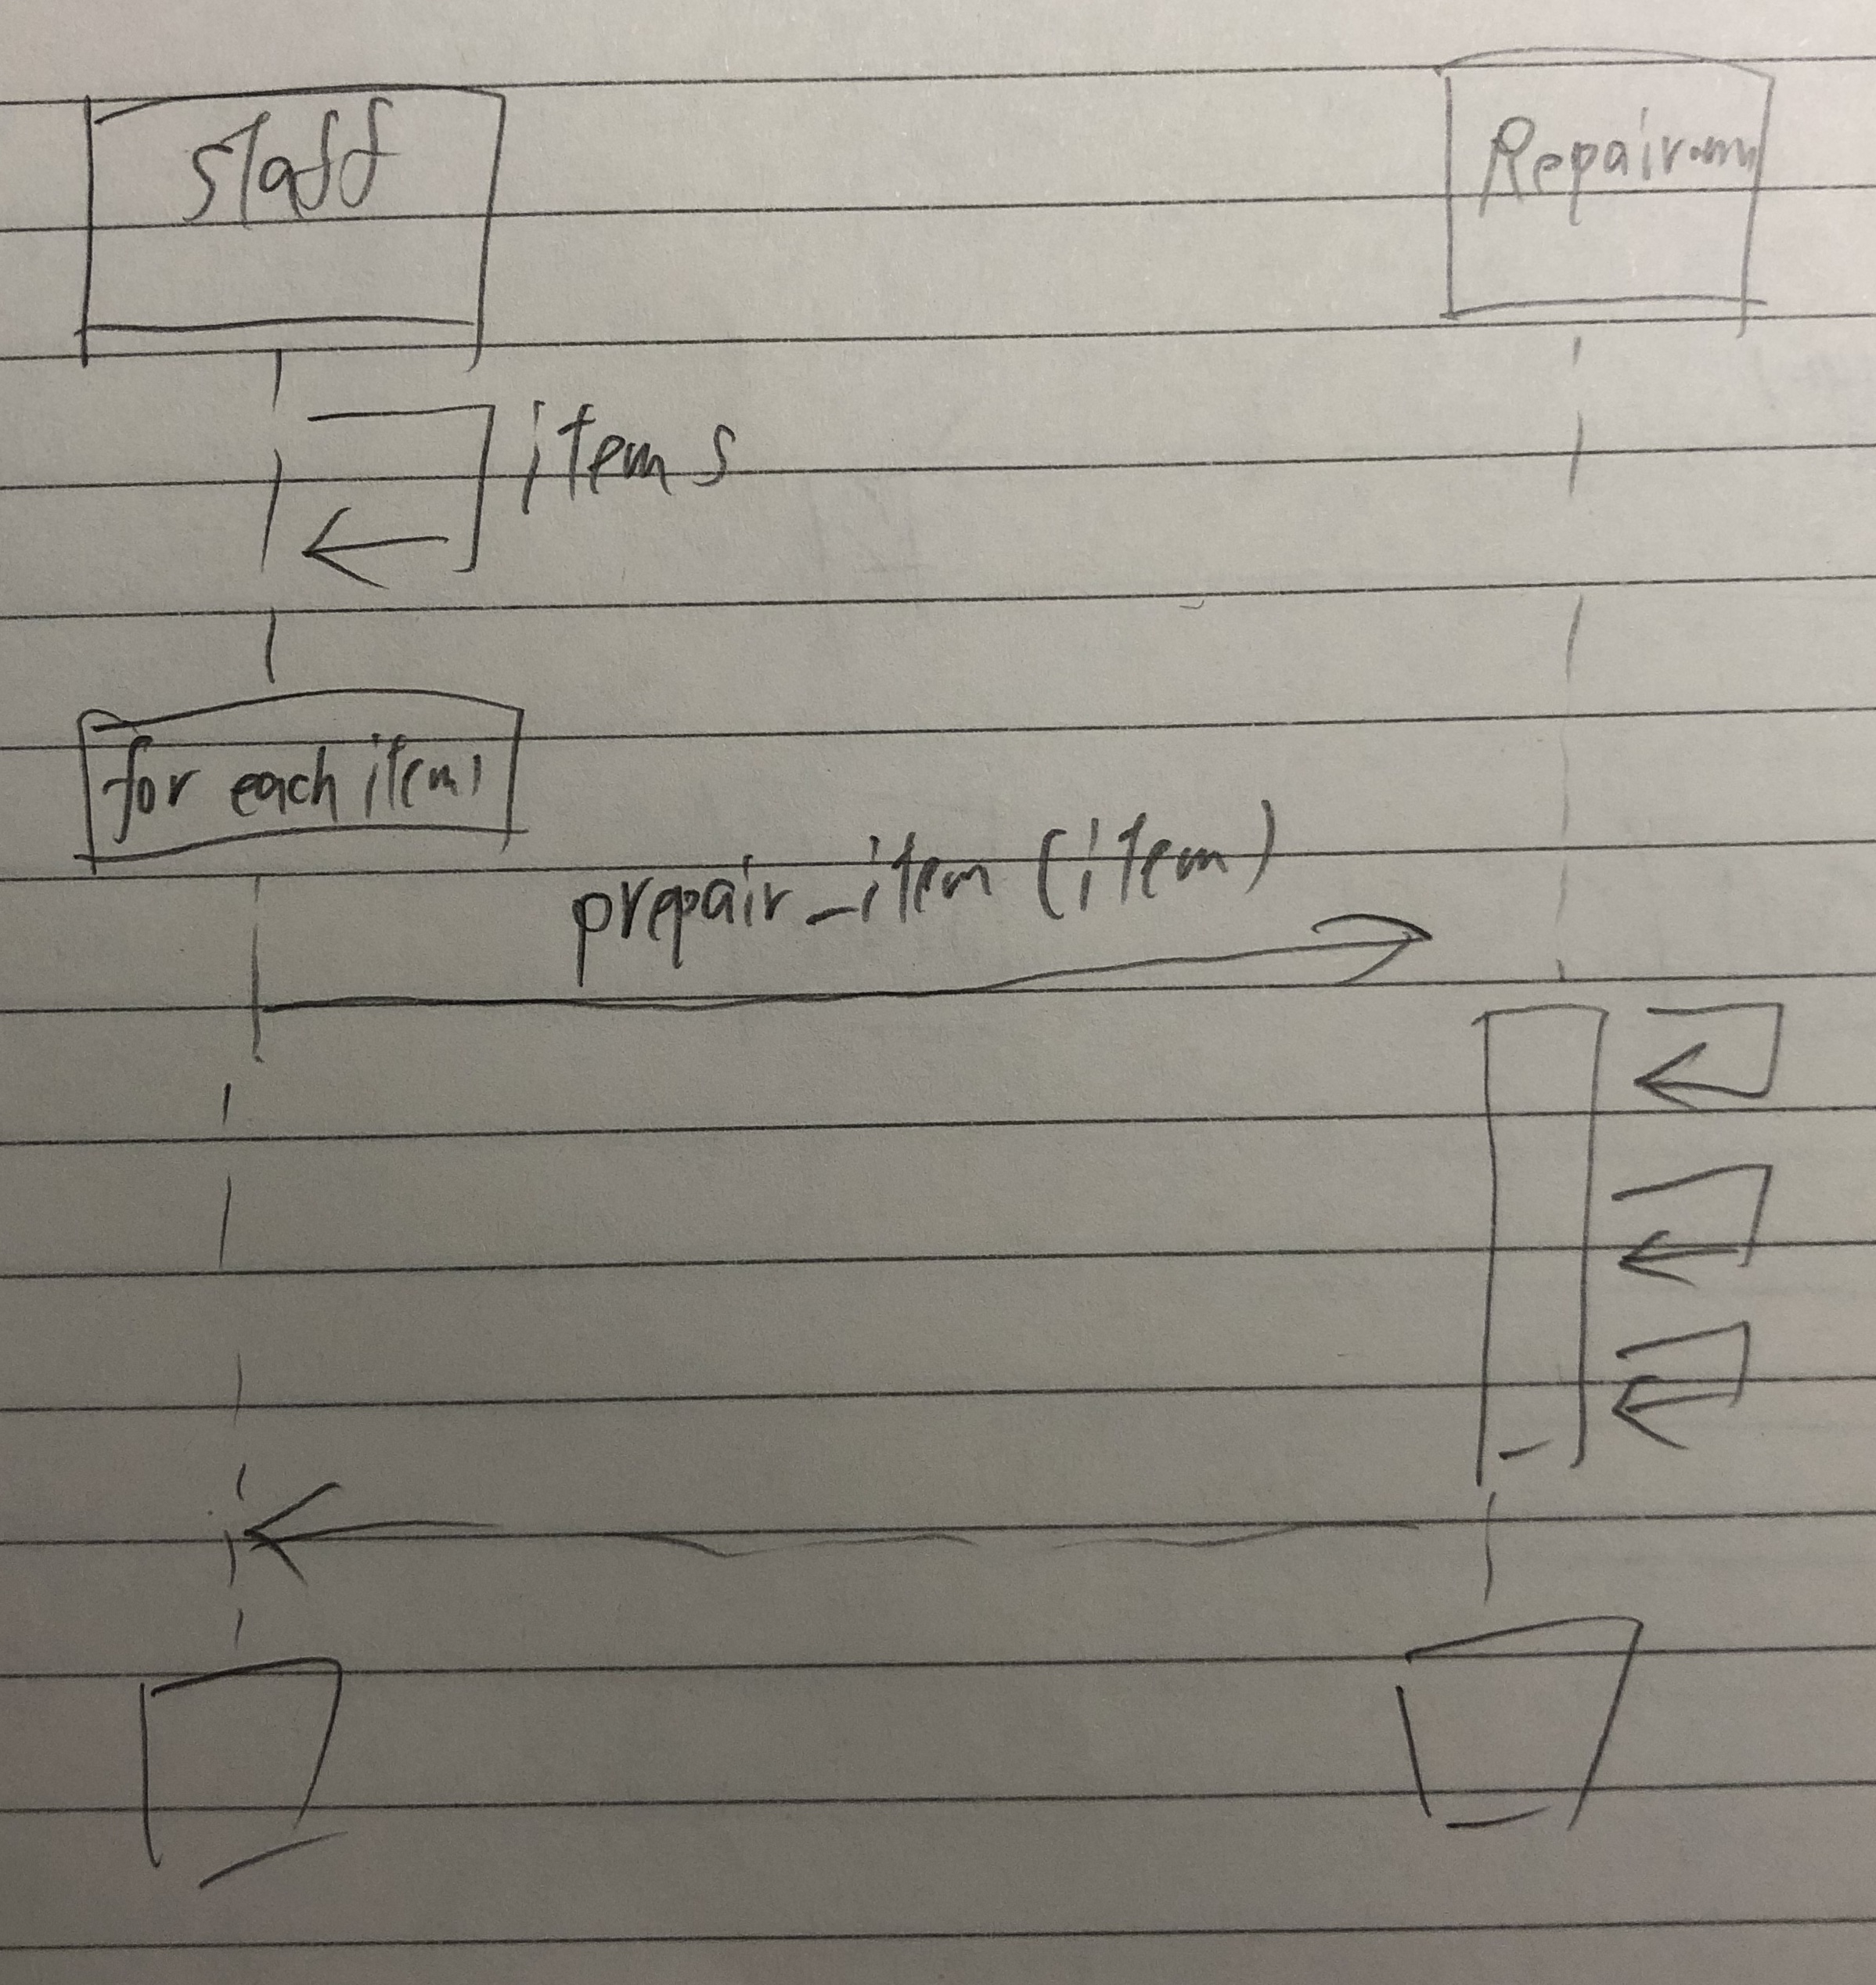 staff
Repairman
items
for each items
prepair_item (item)